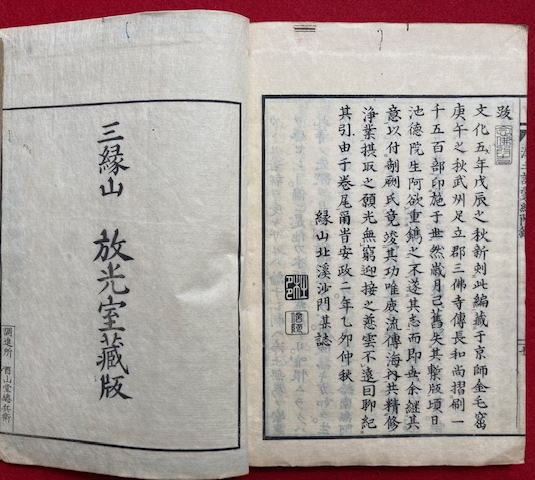 跋
文化五年戊辰之秋新刻此編藏于京師金毛窟
庚午之秋武州足立郡三佛寺傳長和尚摺刷一
千五百部印施于世然歳月已舊失其槧版頃日
池德院生阿欲重鐫之不遂其志而即世余継其
意以付剞劂氏竟竣其功唯庶流傳海内共精修
淨業摂取之願光無窮迎接之慈雲不遠因聊紀
其引由于卷尾甬旹安政二年乙夘仲秋
縁山北溪沙門某誌
三縁山 放光室藏版
調進所 酉山堂總兵衛